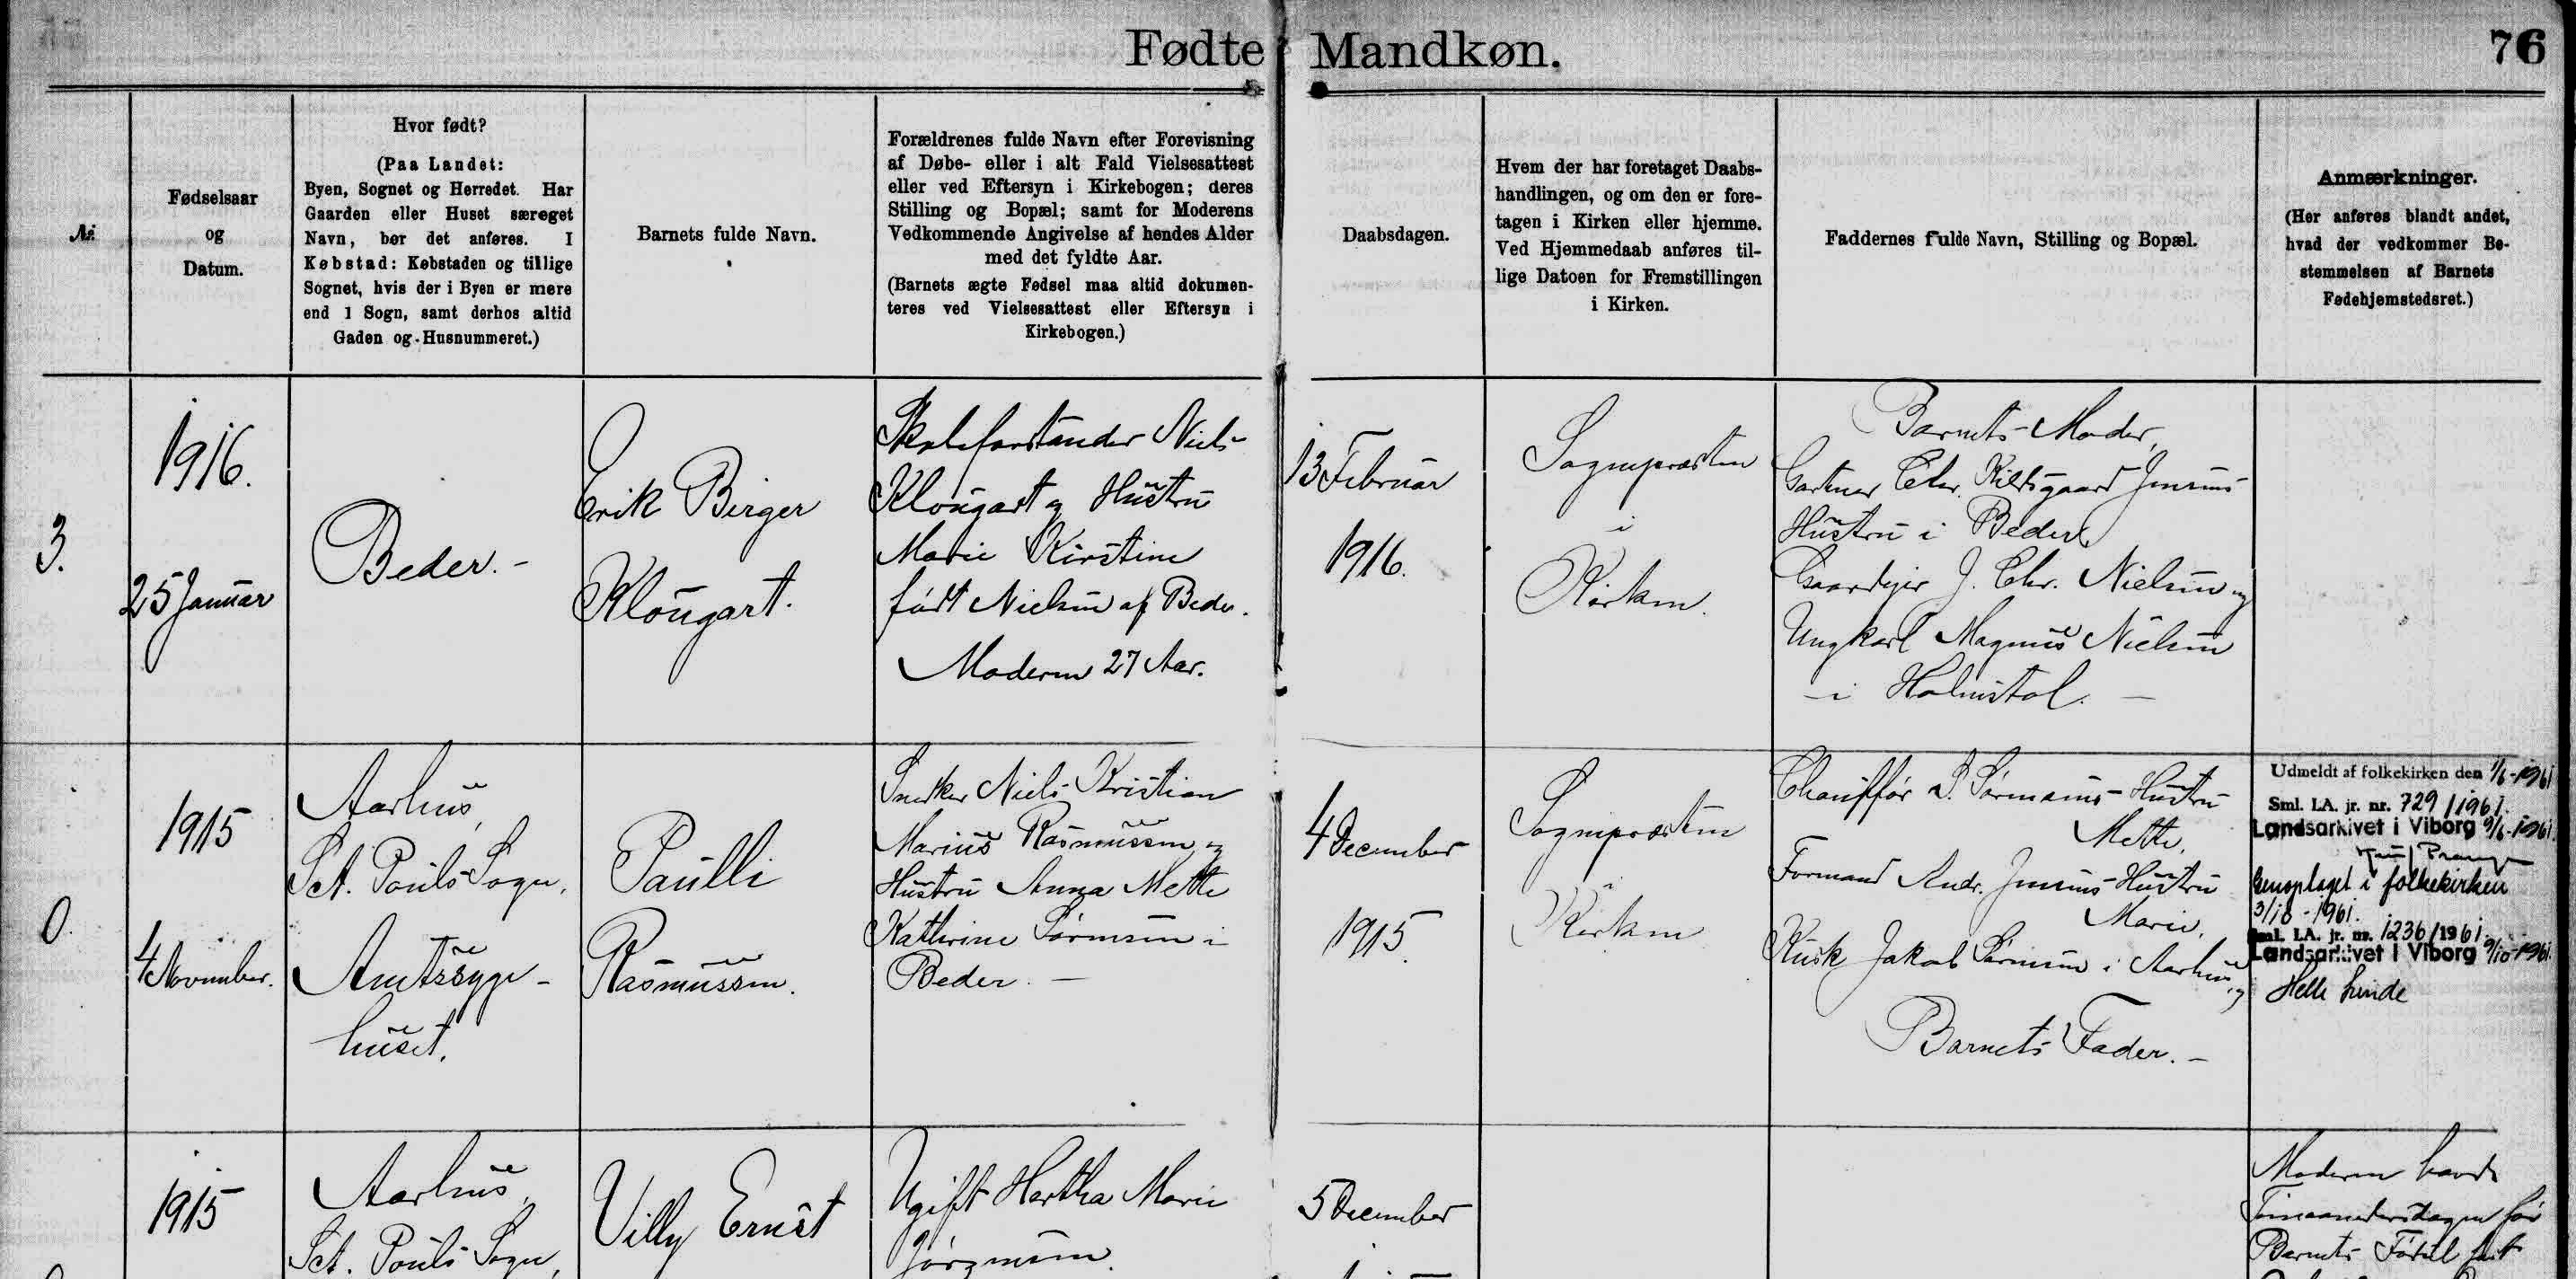 Fødte Mandkøn.
76
№
Fødselsaar
og
Datum.
Hvor født?
(Paa Landet:
Byen, Sognet og Herredet. Har
Gaarden eller Huset særeget
Navn, bør det anføres. I
Købstad: Købstaden og tillige
Sognet, hvis der i Byen er mere
end 1 Sogn, samt derhos altid
Gaden og Husnummeret.)
Barnets fulde Navn.
Forældrenes fulde Navn efter Forevisning
af Døbe- eller i alt Fald Vielsesattest
eller ved Eftersyn i Kirkebogen; deres
Stilling og Bopæl; samt for Moderens
Vedkommende Angivelse af hendes Alder
med det fyldte Aar.
(Barnets ægte Fødsel maa altid dokumen-
teres ved Vielsesattest eller Eftersyn i
Kirkebogen.)
Daabsdagen.
Hvem der har foretaget Daabs-
handlingen, og om den er fore-
tagen i Kirken eller hjemme.
Ved Hjemmedaab anføres til-
lige Datoen for Fremstillingen
i Kirken.
Faddernes fulde Navn, Stilling og Bopæl.
Anmærkninger.
(Her anføres blandt andet,
hvad der vedkommer Be-
stemmelsen af Barnets
Fødehjemstedsret.)
3.
1916.
25 Januar
Beder.-
Erik Birger
Klougart.
Skoleforstander Niels
Klougart og Hustru
Marie Kirstine
født Nielsen af Beder.
Moderen 27 Aar.
13 Februar
1916.
Sognepræsten
i
Kirken.
Barnets Moder,
Gartner Chr. Kildsgaard Jensens
Hustru i Beder,
Gaardejer J. Chr. Nielsen og
Ungkarl Magnus Nielsen
i Holmstol. -
0.
1915
4 November.
Aarhus,
Sct. Pouls Sogn,
Amtssyge-
huset.
Paulli
Rasmussen.
Snedker Niels Kristian
Marius Rasmussen og
Hustru Anna Mette
Kathrine Sørensen i
Beder. -
4 December
1915.
Sognepræsten
i
Kirken
Chauffør S. Sørensens Hustru
Mette,
Formand Andr. Jensens Hustru
Marie,
Kusk Jakob Sørensen i Aarhus, og
Barnets Fader. -
Udmeldt af folkekirken den 1/6-1961
Sml. LA. jr. nr. 729/1961.
Landsarkivet i Viborg 9/6-1961.
Genoptaget i folkekirken
3/10-1961.
Sml. LA. jr. nr. 1236/1961.
Landsarkivet i Viborg 9/10-1961.
Helle Linde
1915
Aarhus,
Sct. Pouls Sogn,
Villy Ernst
Ugift Hertha Marie
Jørgensen.
5 December
Moderen havde
Timaanedersdagen før
Barnets Fødsel fast